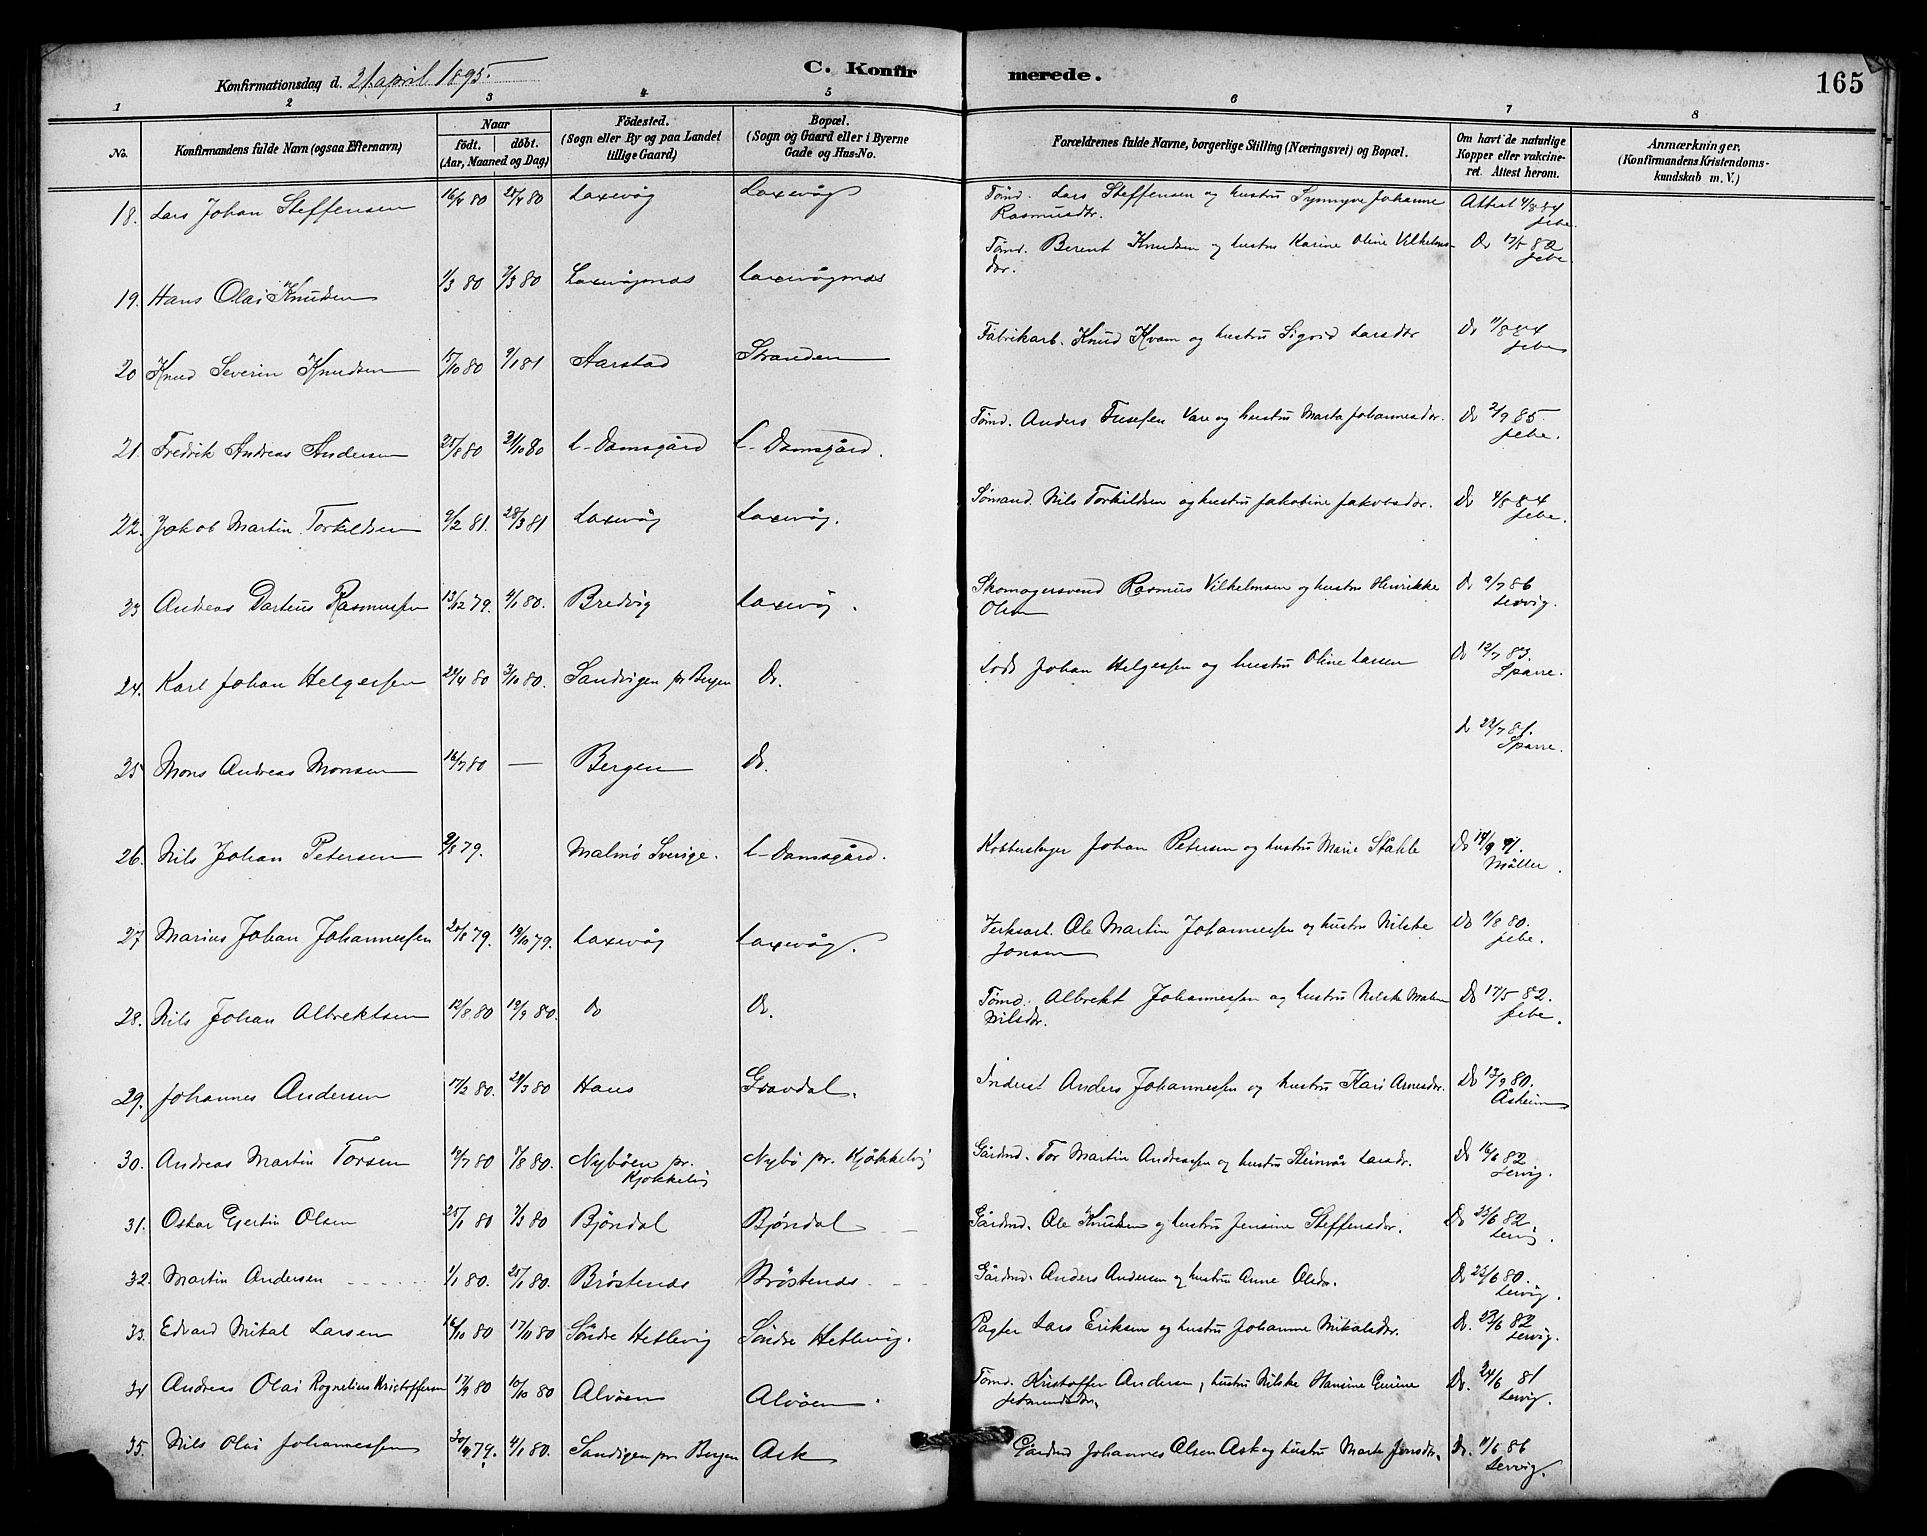 Konfirmationsdag d. 21 april 1895.
C. Konfirmerede.
165
1 2 3 4 5 6 7 8
No.
Konfirmandens fulde Navn (ogsaa Efternavn)
Naar
födt. döbt.
(Aar, Maaned og Dag)
Födested.
(Sogn eller By og paa Landet
tillige Gaard)
Bopæl.
(Sogn og Gaard eller i Byerne
Gade og Hus-No.
Forældrenes fulde Navne, borgerlige Stilling (Næringsvei) og Bopæl.
Om havt de naturlige
Kopper eller vakcine-
ret. Attest herom.
Anmærkninger,
(Konfirmandens Kristendoms-
kundskab m. V.)
18. Lars Johan Steffensen 16/4 80 25/4 80 Laxevåg Laxevåg Tømd. Lars Steffensen og hustru Synnyve Johanne Attest 4/8 84
Rasmusdtr. Jebe.
19. Hans Olai Knudsen 1/3 80 7/3 80 Laxevågnæs Laxevågnæs Tømd. Berent Knudsen og hustru Karine Oline Vilhelms- Do 17/5 82
dtr. Jebe
20 Knud Severin Knudsen 5/10 80 9/1 81 Aarstad Stranden Fabrikarb. Knud Kvam og hustru Sigrid Larsdtr Do 11/8 84
Jebe
21. Fredrik Andreas Andersen 25/8 80 31/10 80 L-Damsgård L-Damsgård. Tømd. Anders Vare og hustru Marta Johannesdtr. Do 2/9 85
Jebe.
22. Jakob Martin Torkildsen 9/2 81. 28/3 81 Laxevåg Laxevåg. Sømand. Nils Torkildsen og hustru Jakobine Jakobsdtr. Do 4/8 84
Jebe.
23 Andreas Darteus Rasmussen 13/12 79. 4/1 80. Bredvig Laxevåg. Skomagersvend Rasmus Vilhelmsen og hustru Henrikke Do 9/7 86
Olsen Lervig.
24. Karl Johan Helgessen 24/4 80 3/10 80. Sandvigen pr Bergen Do. Lods Johan Helgessen og hustru Oline Larsen Do 12/7 83.
Sparre.
25 Mons Andreas Monsen 16/7 80 — Bergen Do. Do 22/7 81.
Sparre.
26. Nils Johan Petersen 9/8 79. Malmö Sverige. L-Damsgård. Kobberslager Johan Petersen og hustru Marie Ståhle Do 14/9 91.
Müller.
27 Marius Johan Johannessen 20/8 79. 19/10 79. Laxevåg Laxevåg. Verksarb. Ole Martin Johannessen og hustru Nilske Do 11/8 80.
Jonsen Jebe.
28. Nils Johan Albrektsen 12/8 80 19/9 80. do Do. Tømd. Albrekt Johannessen og hustru Nilske Malene Do 17/5 82.
Nilsdtr. Jebe.
29. Johannes Andersen 17/2 80. 29/3 80 Haus Gravdal. Inderst Anders Johannessen og hustru Kari Arnesdtr. Do 13/9 80.
Åsheim
30. Andreas Martin Torsen 19/7 80 8/8 80. Nybøen pr. Nybø pr. Kjøkkelvig Gårdmd. Tor Martin Andreassen og hustru Steinvår Larsdr. Do 16/6 82
Kjøkkelvig Lervig.
31. Oskar Gjertin Olsen 25/1 80 Bjöndal Bjøndal Gårdmd. Ole Knudsen og hustru Jensine Steffensdtr. Do 23/6 82.
Lervig.
32. Martin Andersen 1/1 80. 25/1 80. Brøstenæs Brøstenæs Gårdmd. Anders Andersen og hustru Anne Olsdr. Do 23/6 80.
Lervig.
33. Edvard Mikal Larsen 16/10 80 17/10 80 Søndre Hetlevig Søndre Hetlevig. Pagter Lars Eriksen og hustru Johanne Mikalsdtr. Do. 23/6 82
Lervig.
34 Andreas Olai Rognelius Kristoffersen 17/9 80 10/10 80 Alvøen Alvøen. Tømd. Kristoffer Andersen, hustru Nilske Hansine Gurine Do. 24/6 81
Lervig.
35. Nils Olai Johannessen 30/9 79. 4/1 80. Sandvigen pr Bergen Ask Gårdmd Johannes Olsen Ask og hustru Marta Jonsdtr. Do. 11/6 86
Lervig.